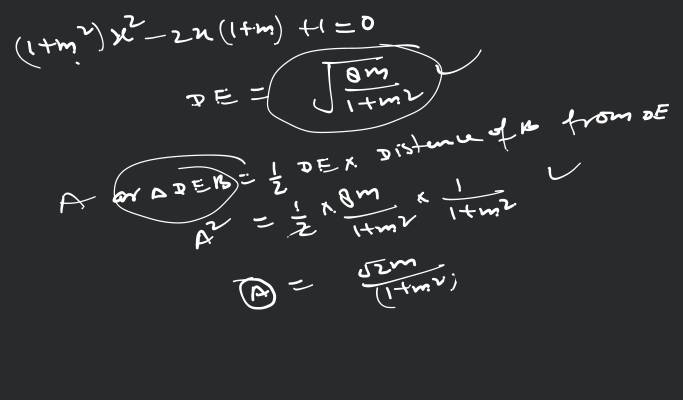 (1+m²)x² - 2x(1+m) + 1 = 0
DE = √(8m/(1+m2))
A or Δ DEB = 1/2 DE × Distance of B from DE
A² = 1/2 × 8m/(1+m2) × 1/(1+m2)
A = √2m/(1+m²)